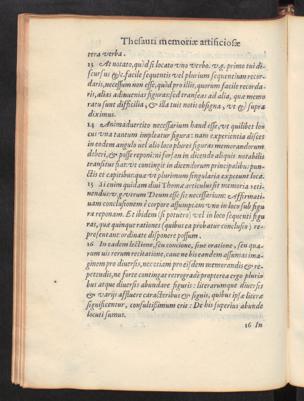 Thesauri memoriæ artificiosæ
tera verba.
13 At notato, quòd si locato uno verbo. v.g. primo tui di-
scursus &c. facile sequentis vel plurium sequentium recor-
daris, necessum non esse, quòd pro illis, quorum facile recorda-
ris, alias adinuenias figuras: sed transeas ad alia, quæ memo-
ratu sunt difficilia, & illa tuis notis obsigna, vt & supra
diximus.
14 Animaduertito necessarium haud esse, vt quilibet lo-
cus vna tantum impleatur figura: nam experientia disces
in eodem angulo vel alio loco plures figuras memorandorum
deberi, & posse reponi: ni forsan in dicendo aliquis notabilis
transitus fiat: vt contingit in dicendorum principalibus pun-
ctis et capitibus: quæ vt plurimum singularia expetunt loca.
15 Si cuim quidam diui Thomæ articulus sit memoria reti-
nendus: v.g. verum Deum esse sit necessarium: & Affirmati-
uam conclusionem è corpore assumptam vno in loco sub figu
ra reponam. Et ibidem (si potuero) vel in loco sequenti figu
ras, quæ quinque rationes (quibus ea probatur conclusio) re-
præsentant ordinate disponere possum.
16 In eadem lectione, seu concione, siue oratione, seu qua-
rum uis rerum recitatione, caue ne bis eandem assumas ima-
ginem pro diuersis, nec etiam pro eisdem memorandis & re-
petendis, ne forte contingat retrogradi: propterea ergo pluri
bus atque diuersis abundare figuris: literarumque diuersis
& varijs affluere caracteribus & signis, quibus ipsæ literæ
significentur, consultissimum erit: De his superius abunde
locuti sumus.
16 In